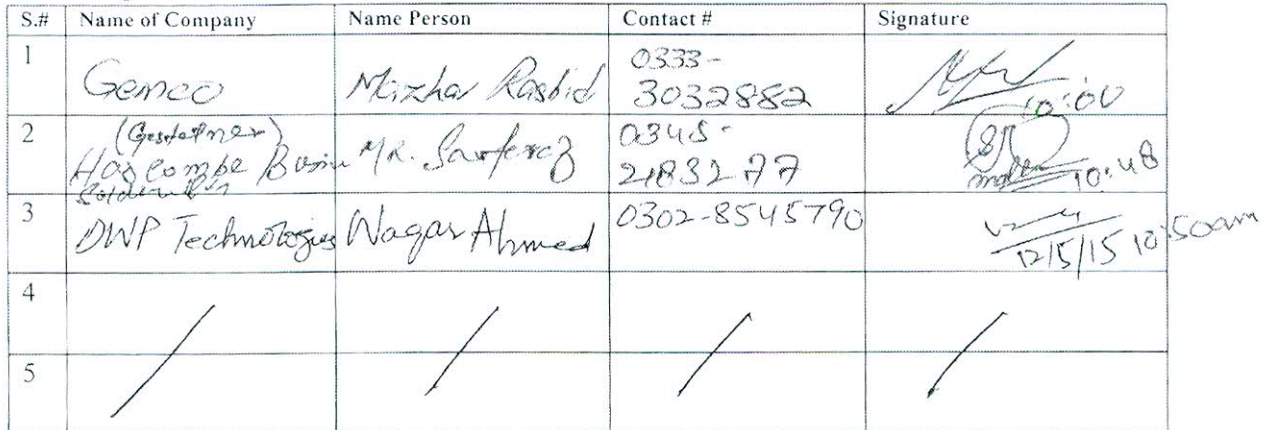 S.# Name of Company Name Person Contact # Signature
1 Gemco Mazhar Rashid 0333-
3032882
10:00
2 (Gestetner) MR. Sarferaz 0345-
2183277
10:48
3 DWP Technologies Waqar Ahmed 0302-8545790
12/5/15 10:50am
4
5